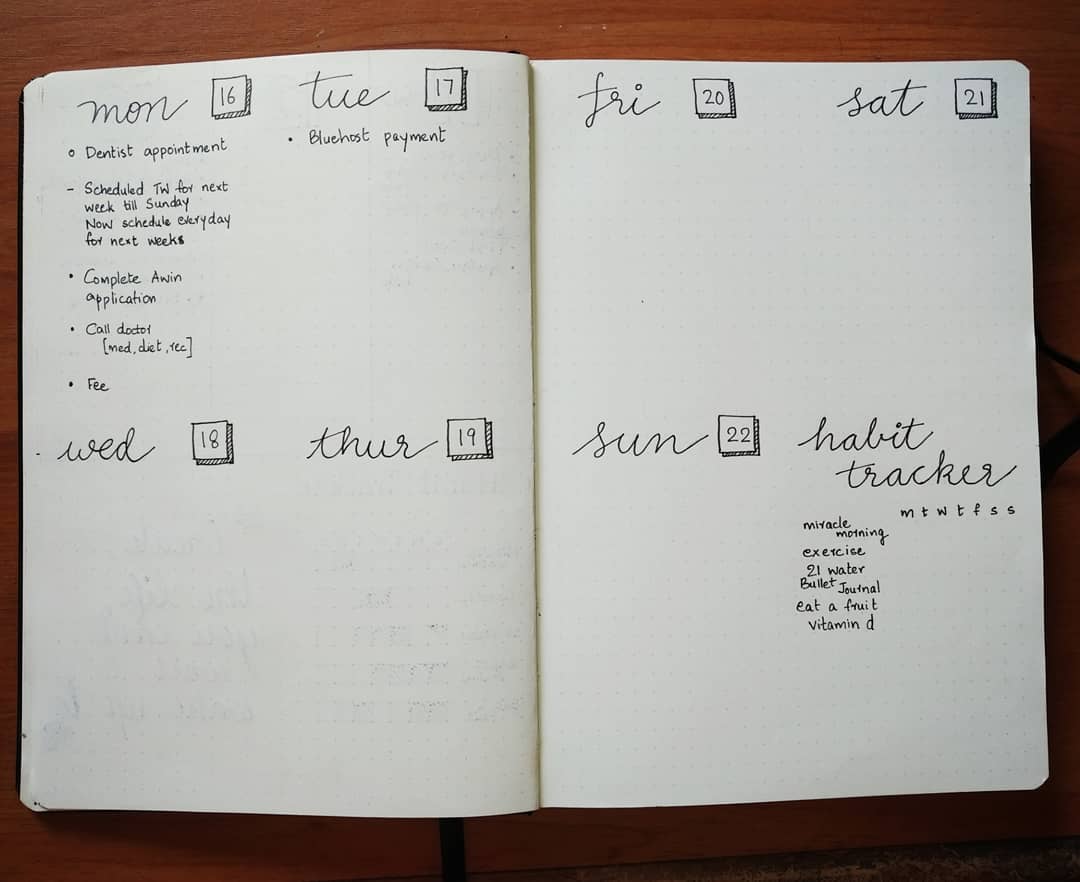 mon 16
o Dentist appointment
– Scheduled TW for next
week till Sunday
Now schedule everyday
for next weeks
• Complete Awin
application
• Call doctor
[med, diet, rec]
• Fee
tue 17
• Bluehost payment
wed 18
thur 19
fri 20
sat 21
sun 22
habit
tracker
m t w t f s s
miracle
morning
exercise
2l water
Bullet Journal
eat a fruit
vitamin d